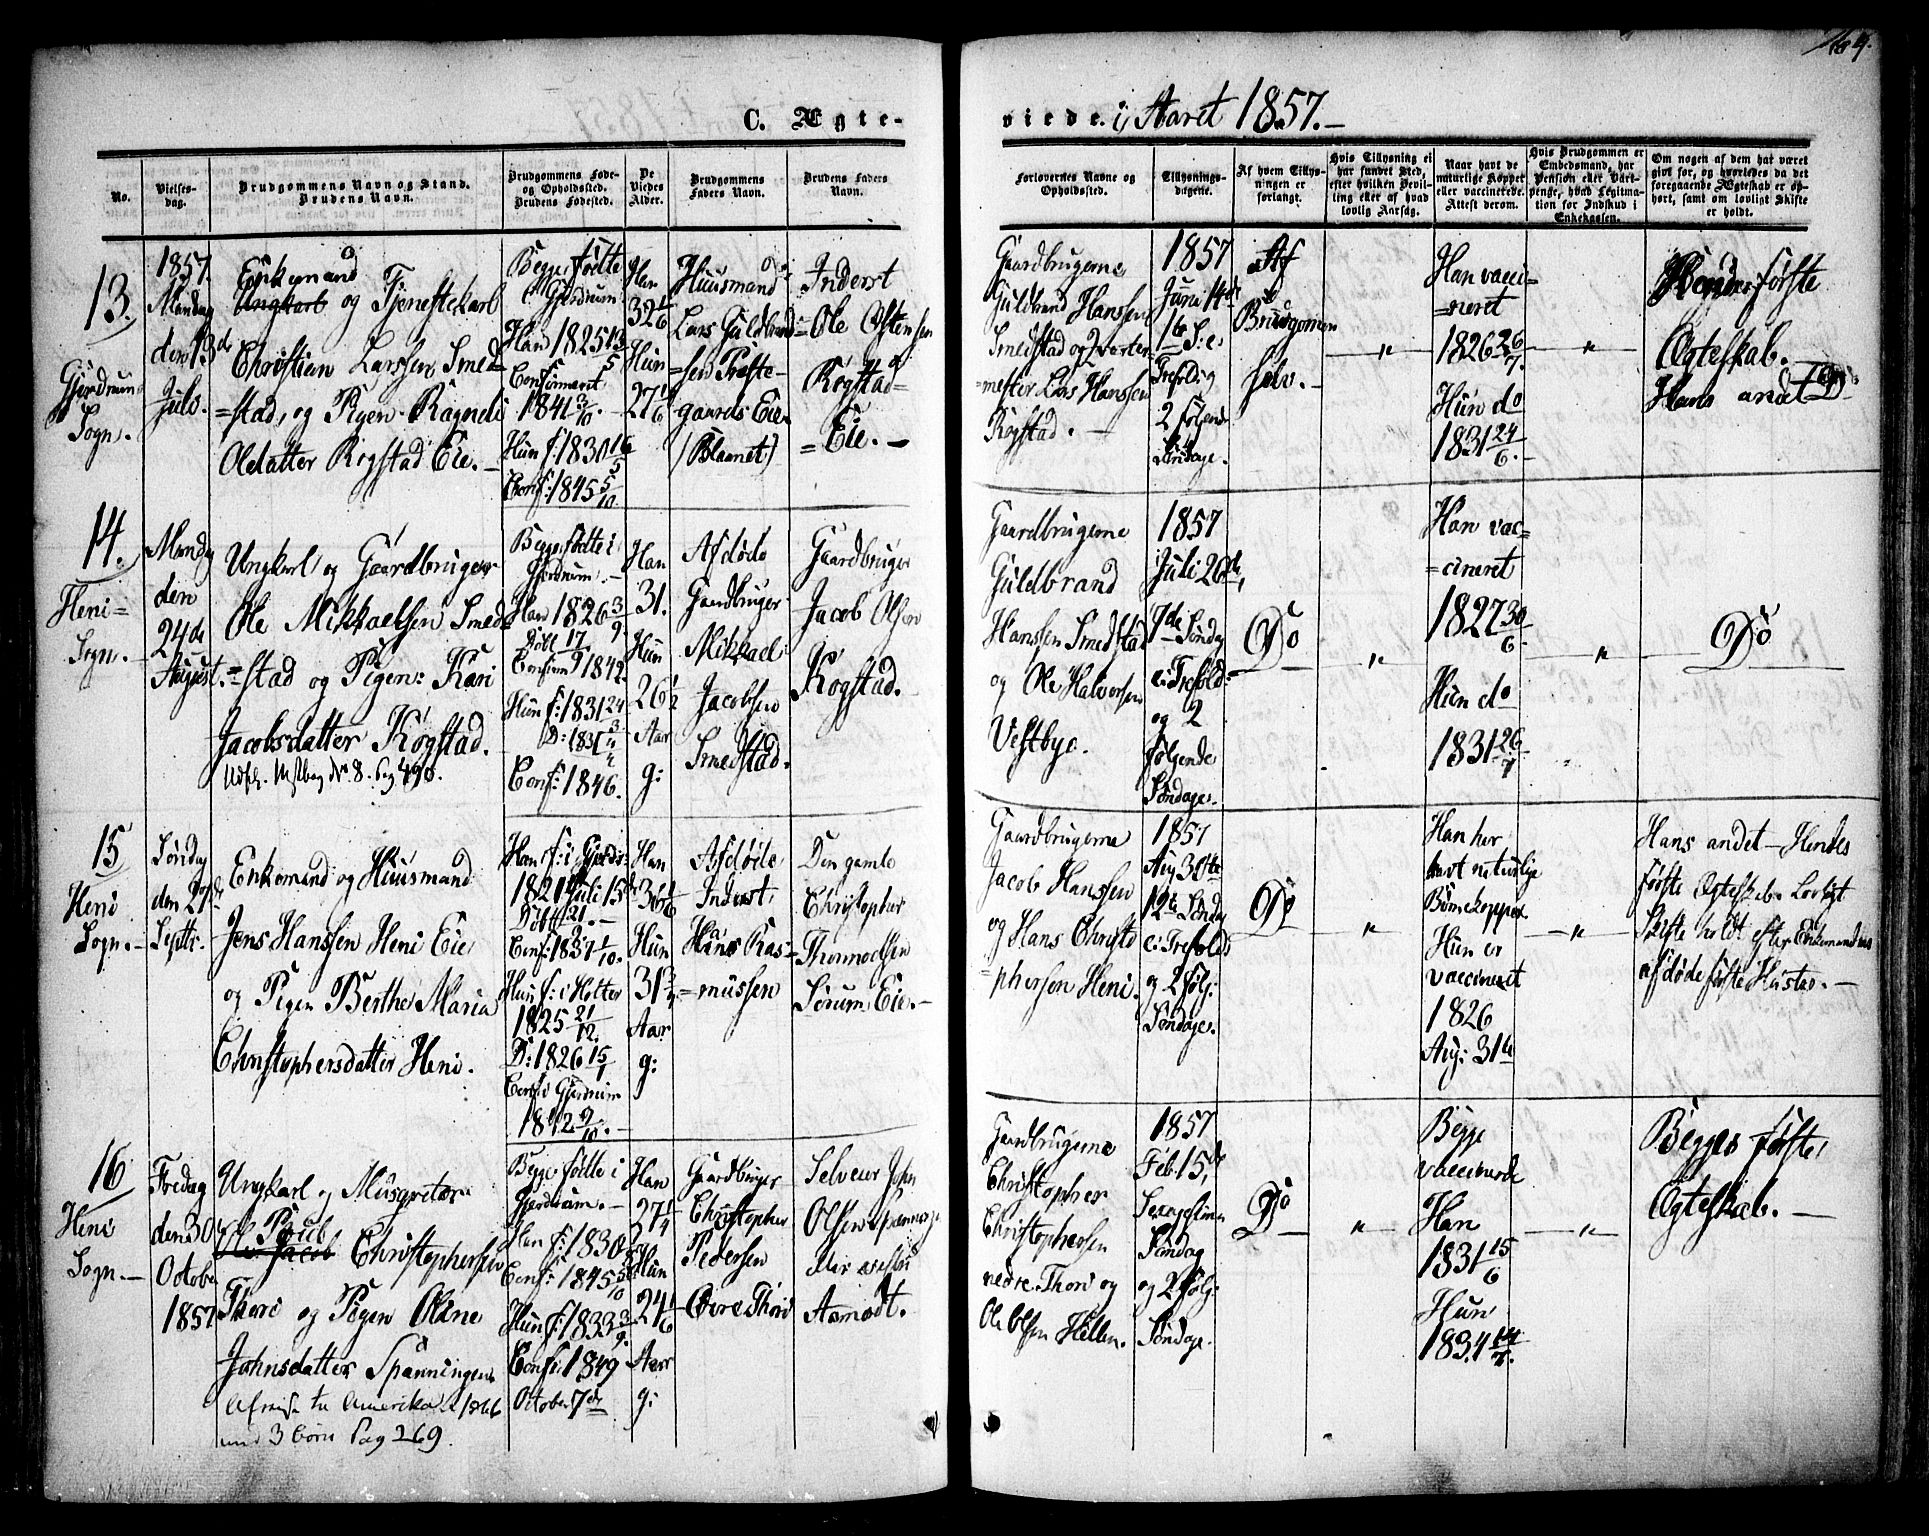 C. Ægte-
viede i Aaret 1857.
No.
Vielses-
dag.
Brudgommens Navn og Stand.
Brudens Navn.
Brudgommens Føde-
og Opholdssted.
Brudens Fødested.
De
Viedes
Alder.
Brudgommens
Faders Navn.
Brudens Faders
Navn.
Forlovernes Navne og
Opholdssted.
Tillysnings-
dagene.
Af hvem Tillys-
ningen er
forlangt.
Hvis Tillysning ei
har fundet Sted,
efter hvilken Bevil-
ling eller af hvad
lovlig Aarsag.
Naar havt de
naturlige Kopper
eller vaccinerede.
Attest derom.
Hvis Brudgommen er
Embedsmand, har
Pension eller Vart-
penge, hvad Legitima-
tion for Indskud i
Enkekassen.
Om nogen af dem har været
gift før, og hvorledes da det
foregaaende Ægteskab er op-
hørt, samt om lovligt Skifte
er holdt.
13.
Gjerdrum
Sogn.
1857.
Mandag
den 13de
Juli.
Enkemand
Ungkarl og Tjenestekarl
Christian Larssen Smed-
=stad, og Pigen Ragneli
Olsdatter Rogstad Eie.
Begge fødte
i Gjerdrum
Han 1825 13/5
Confirmeret
1841 3/10.
Hun f: 1830 16/5
Conf: 1845 5/10
Han
32 1/6
Hun
27 1/6
Huusmand
Lars Guldbrand-
=sen Præste-
gaards Eie
(Blaanet)
Inderst
Ole Ostensen
Rogstad
=Eie.
Gaardbrugerne
Guldbrand Hanssen
Smedstad og Qvarter-
=mester Lars Hanssen
Rogstad.
1857
Juni 14de
1te S: e:
Trefoldig
2 følgende
Søndage.
Af
Brudgommen
selv.
"
Han vacci-
=neret
1826 26/7
Hun do
1831 24/6.
"
Hendes første
Ægteskab.
Hans andet
14.
Heni=
Sogn.
Mandag
den
24de
August.
Ungkarl og Gaardbruger
Ole Mikkaelsen Smed-
=stad og Pigen: Kari
Jacobsdatter Rogstad.
Begge fødte i
Gjerdrum.
Han 1826 3/9.
Døbt 17/9
Confirm 1842.
Hun f: 1831 24/3
D: 1831 4/4
Conf: 1846.
Han
31.
Hun
26 1/2
Aar
g:
Afdøde
Gaardbruger
Mikkael
Jacobsen
Smedstad.
Gaardbruger
Jacob Olsen
Rogstad.
Gaardbrugerne
Guldbrand
Hanssen Smedstad
og Ole Halvorsen
Vestbye.
1857
Juli 26de,
7de Søndag
e: Trefold:
og 2
følgende
Søndage.
Do
"
Han vac-
=cineret
1827 30/6.
Hun do
1831 26/7
"
Do
15
Heni
Sogn.
Søndag
den 27de
Septbr.
Enkemand og Huusmand
Jens Hanssen Heni Eie
og Pigen Berthe Maria
Christophersdatter Heni.
Han f: i Gjerdr:
1821 Juli 15de
Døbt 21.
Conf: 1837 1/10.
Hun f: i Holter
1825 21/12.
D: 1826 15/1
Conf i Gjerdrum
1842 9/10.
Han
36 1/6
Hun
31 3/4
Aar
g:
Afdøde
Inderst
Hans Ras-
=mussen
Den gamle
Christopher
Thormodsen
Sørum Eie.
Gaardbrugerne
Jacob Hanssen
og Hans Christo
=phersen Heni.
1857
Aug 30te
12te Søndag
e: Trefold:
og 2 følg:
Søndage.
Do
"
Han har
havt naturlige
Børnekopper
Hun er
vaccineret
1826
Aug: 31te
"
Hans andet - Hendes
første Ægteskab. Lovligt
Skifte holdt efter Enkemandens
afdøde første Hustro.
16
Heni
Sogn.
Fredag
den 30
October
1857
Ungkarl og Musqueter
Christophersen
Thori og Pigen Oline
Johnsdatter Spanningen
Afreist til Amerika 1866
med 3 børn Pag 269.
Begge fødte i
Gjerdrum.
Han f: 1830
Conf: 1845 5/10
Hun f: 1833 3/9.
Conf: 1849
October 7de
Han
27 1/4
Hun
24 1/6
Aar
g:
Gaardbruger
Christopher
Pedersen
Øvre Thori
Selveier John
Olsen
Aamodt.
Gaardbrugerne
Christopher
Christophersen
nedre Thori og
Ole Olsen Hellen.
1857
Feb. 15de,
Sexagesima
Søndag
og 2 følg:
Søndage.
Do
"
Begge
vaccinerede
Han
1831 15/6
Hun
1834 14/7.
"
Begges første
Ægteskab.